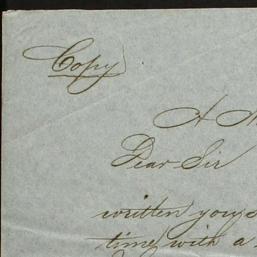 Copy
A
Dear Sir
written your
time with a